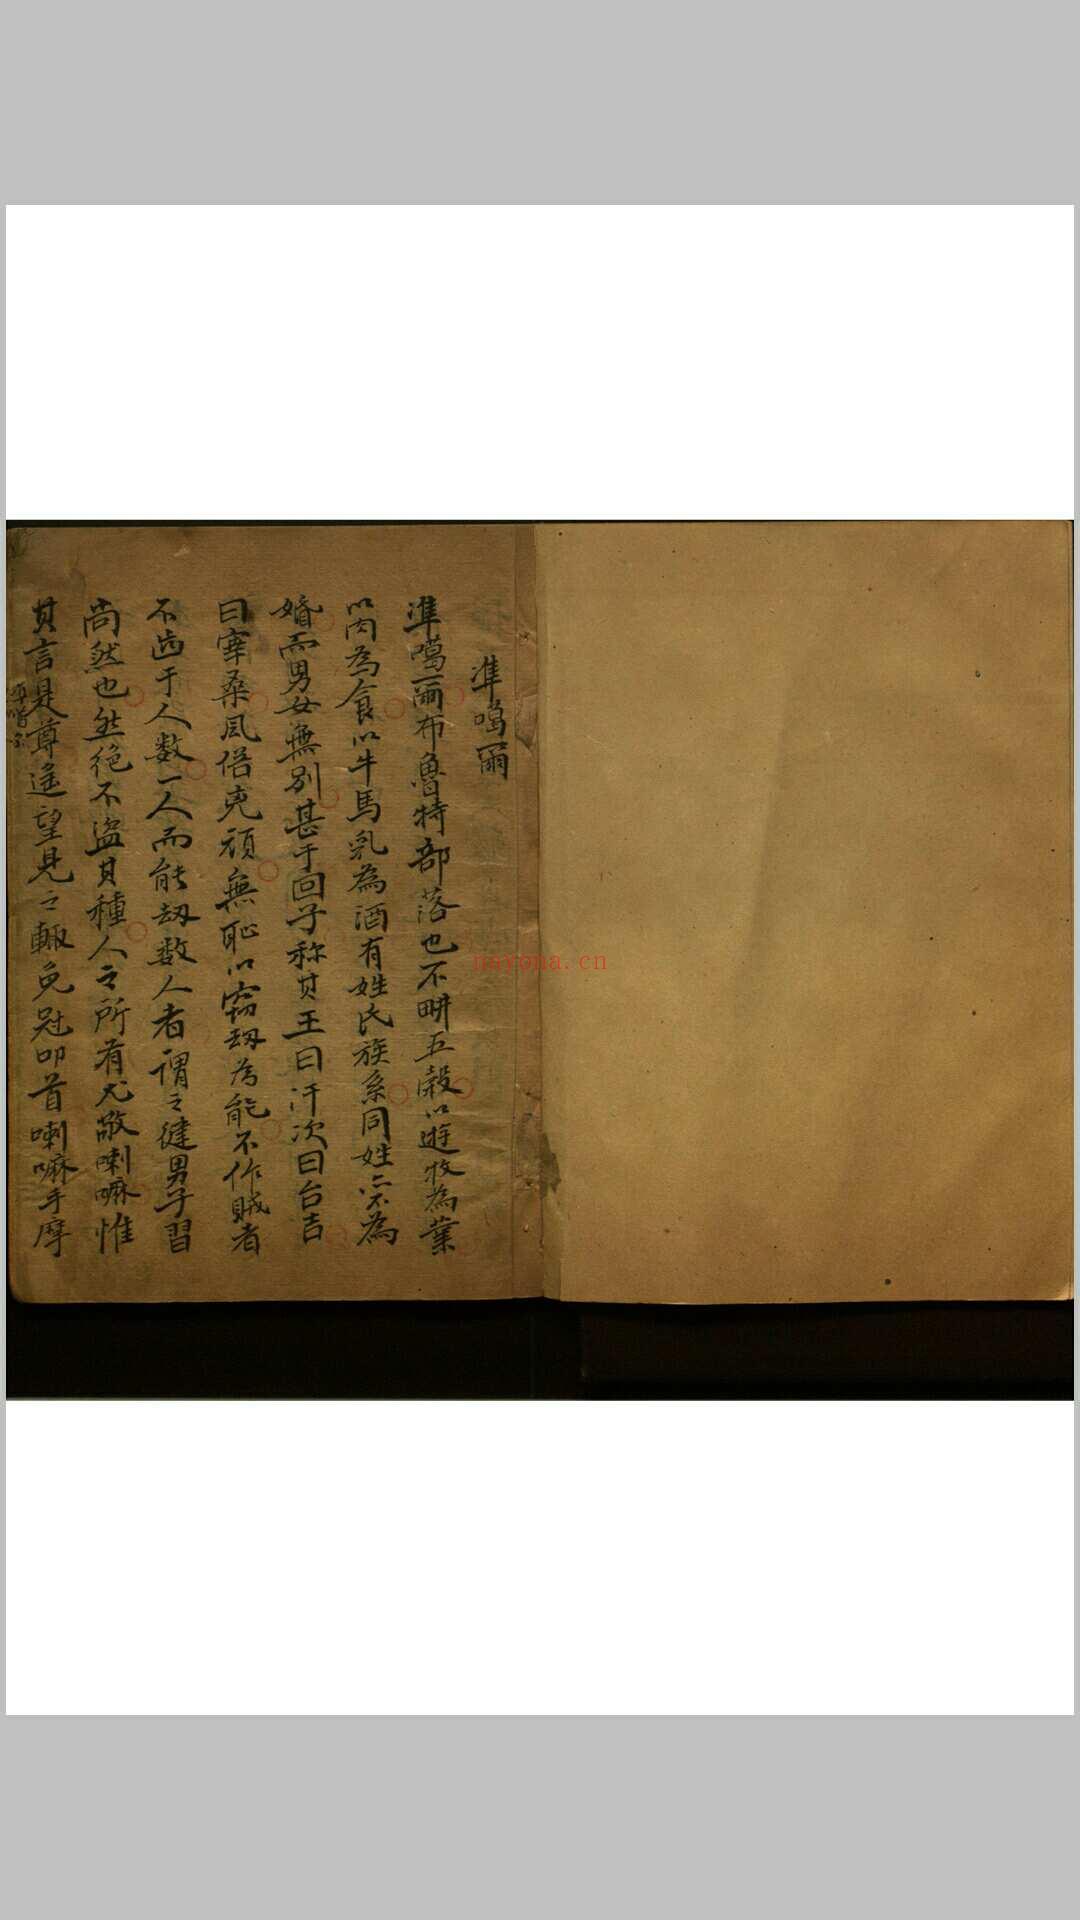 準噶爾
準噶爾布魯特部落也不畊五穀以遊牧為業
以肉為食以牛馬乳為酒有姓氏族系同姓不為
婚而男女無別甚于回子称其王曰汗次曰台吉
曰宰桑風俗兇頑無恥以竊刼為能不作賊者
不齒于人数一人而能刼数人者謂之健男子習
尚然也然絕不盗其種人之所有尤敬喇嘛惟
其言是尊遥望見之輒免冠叩首喇嘛手摩
nayona.cn